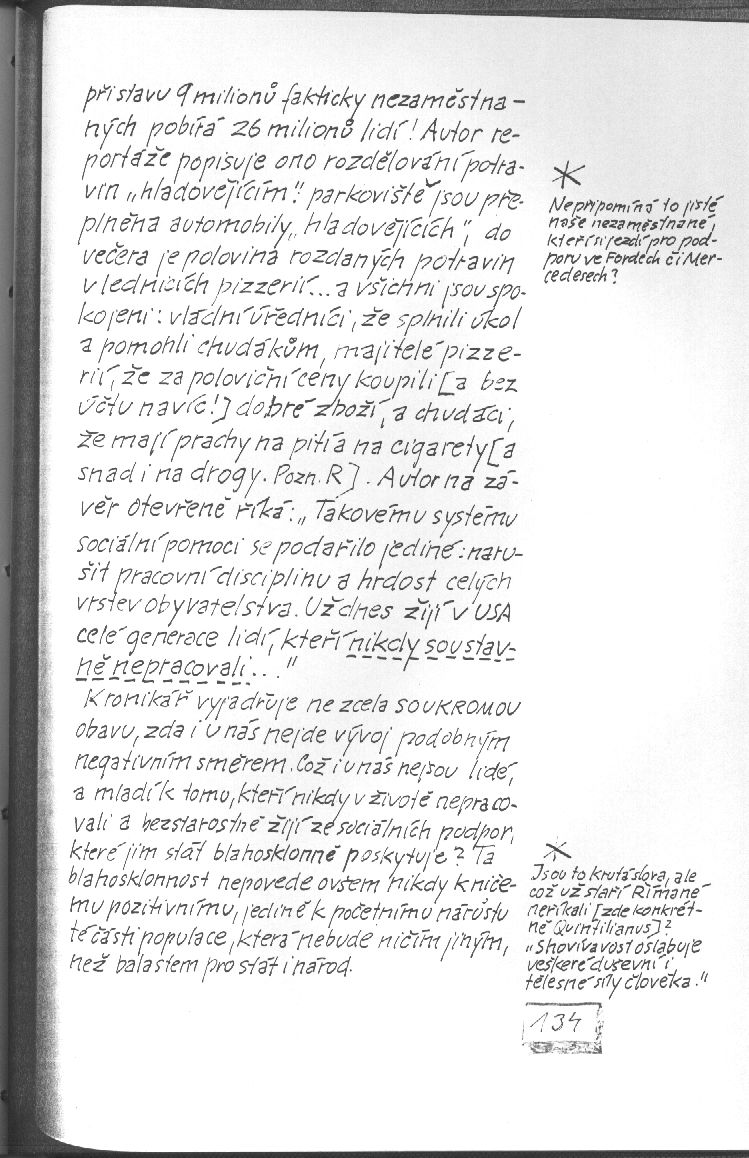 při stavu 9 milionů fakticky nezaměstna-
ných pobírá 26 milionů lidí! Autor re-
portáže popisuje ono rozdělování potra-
vin „hladovějícím": parkoviště jsou pře-
plněna automobily „hladovějících", do
večera je polovina rozdaných potravin
v lednicích pizzerií... a všichni jsou spo-
kojeni: vládní úředníci, že splnili úkol
a pomohli chudákům, majitelé pizze-
rií, že za poloviční ceny koupili [a bez
účtu navíc!] dobré zboží, a chudáci,
že mají prachy na pití a na cigarety [a
snad i na drogy. Pozn. R]. Autor na zá-
věr otevřeně říká: „Takovému systému
sociální pomoci se podařilo jediné: naru-
šit pracovní disciplinu a hrdost celých
vrstev obyvatelstva. Už dnes žijí v USA
celé generace lidí, kteří nikdy soustav-
ně nepracovali..."
Kronikář vyjadřuje ne zcela SOUKROMOU
obavu, zda i u nás nejde vývoj podobným
negativním směrem. Což i u nás nejsou lidé,
a mladí k tomu, kteří nikdy v životě nepraco-
vali a bezstarostně žijí ze sociálních podpor,
které jim stát blahosklonně poskytuje? Ta
blahosklonnost nepovede ovšem nikdy k niče-
mu pozitivnímu, jedině k početnímu nárůstu
té části populace, která nebude ničím jiným,
než balastem pro stát i národ.
*
Nepřipomíná to jistě
naše nezaměstnané,
kteří si jezdí pro pod-
poru ve Fordech či Mer-
cedesech?
*
Jsou to krutá slova, ale
což už staří Římané
neříkali [zde konkrét-
ně Quintilianus]?
„Shovívavost oslabuje
veškeré duševní i
tělesné síly člověka."
134